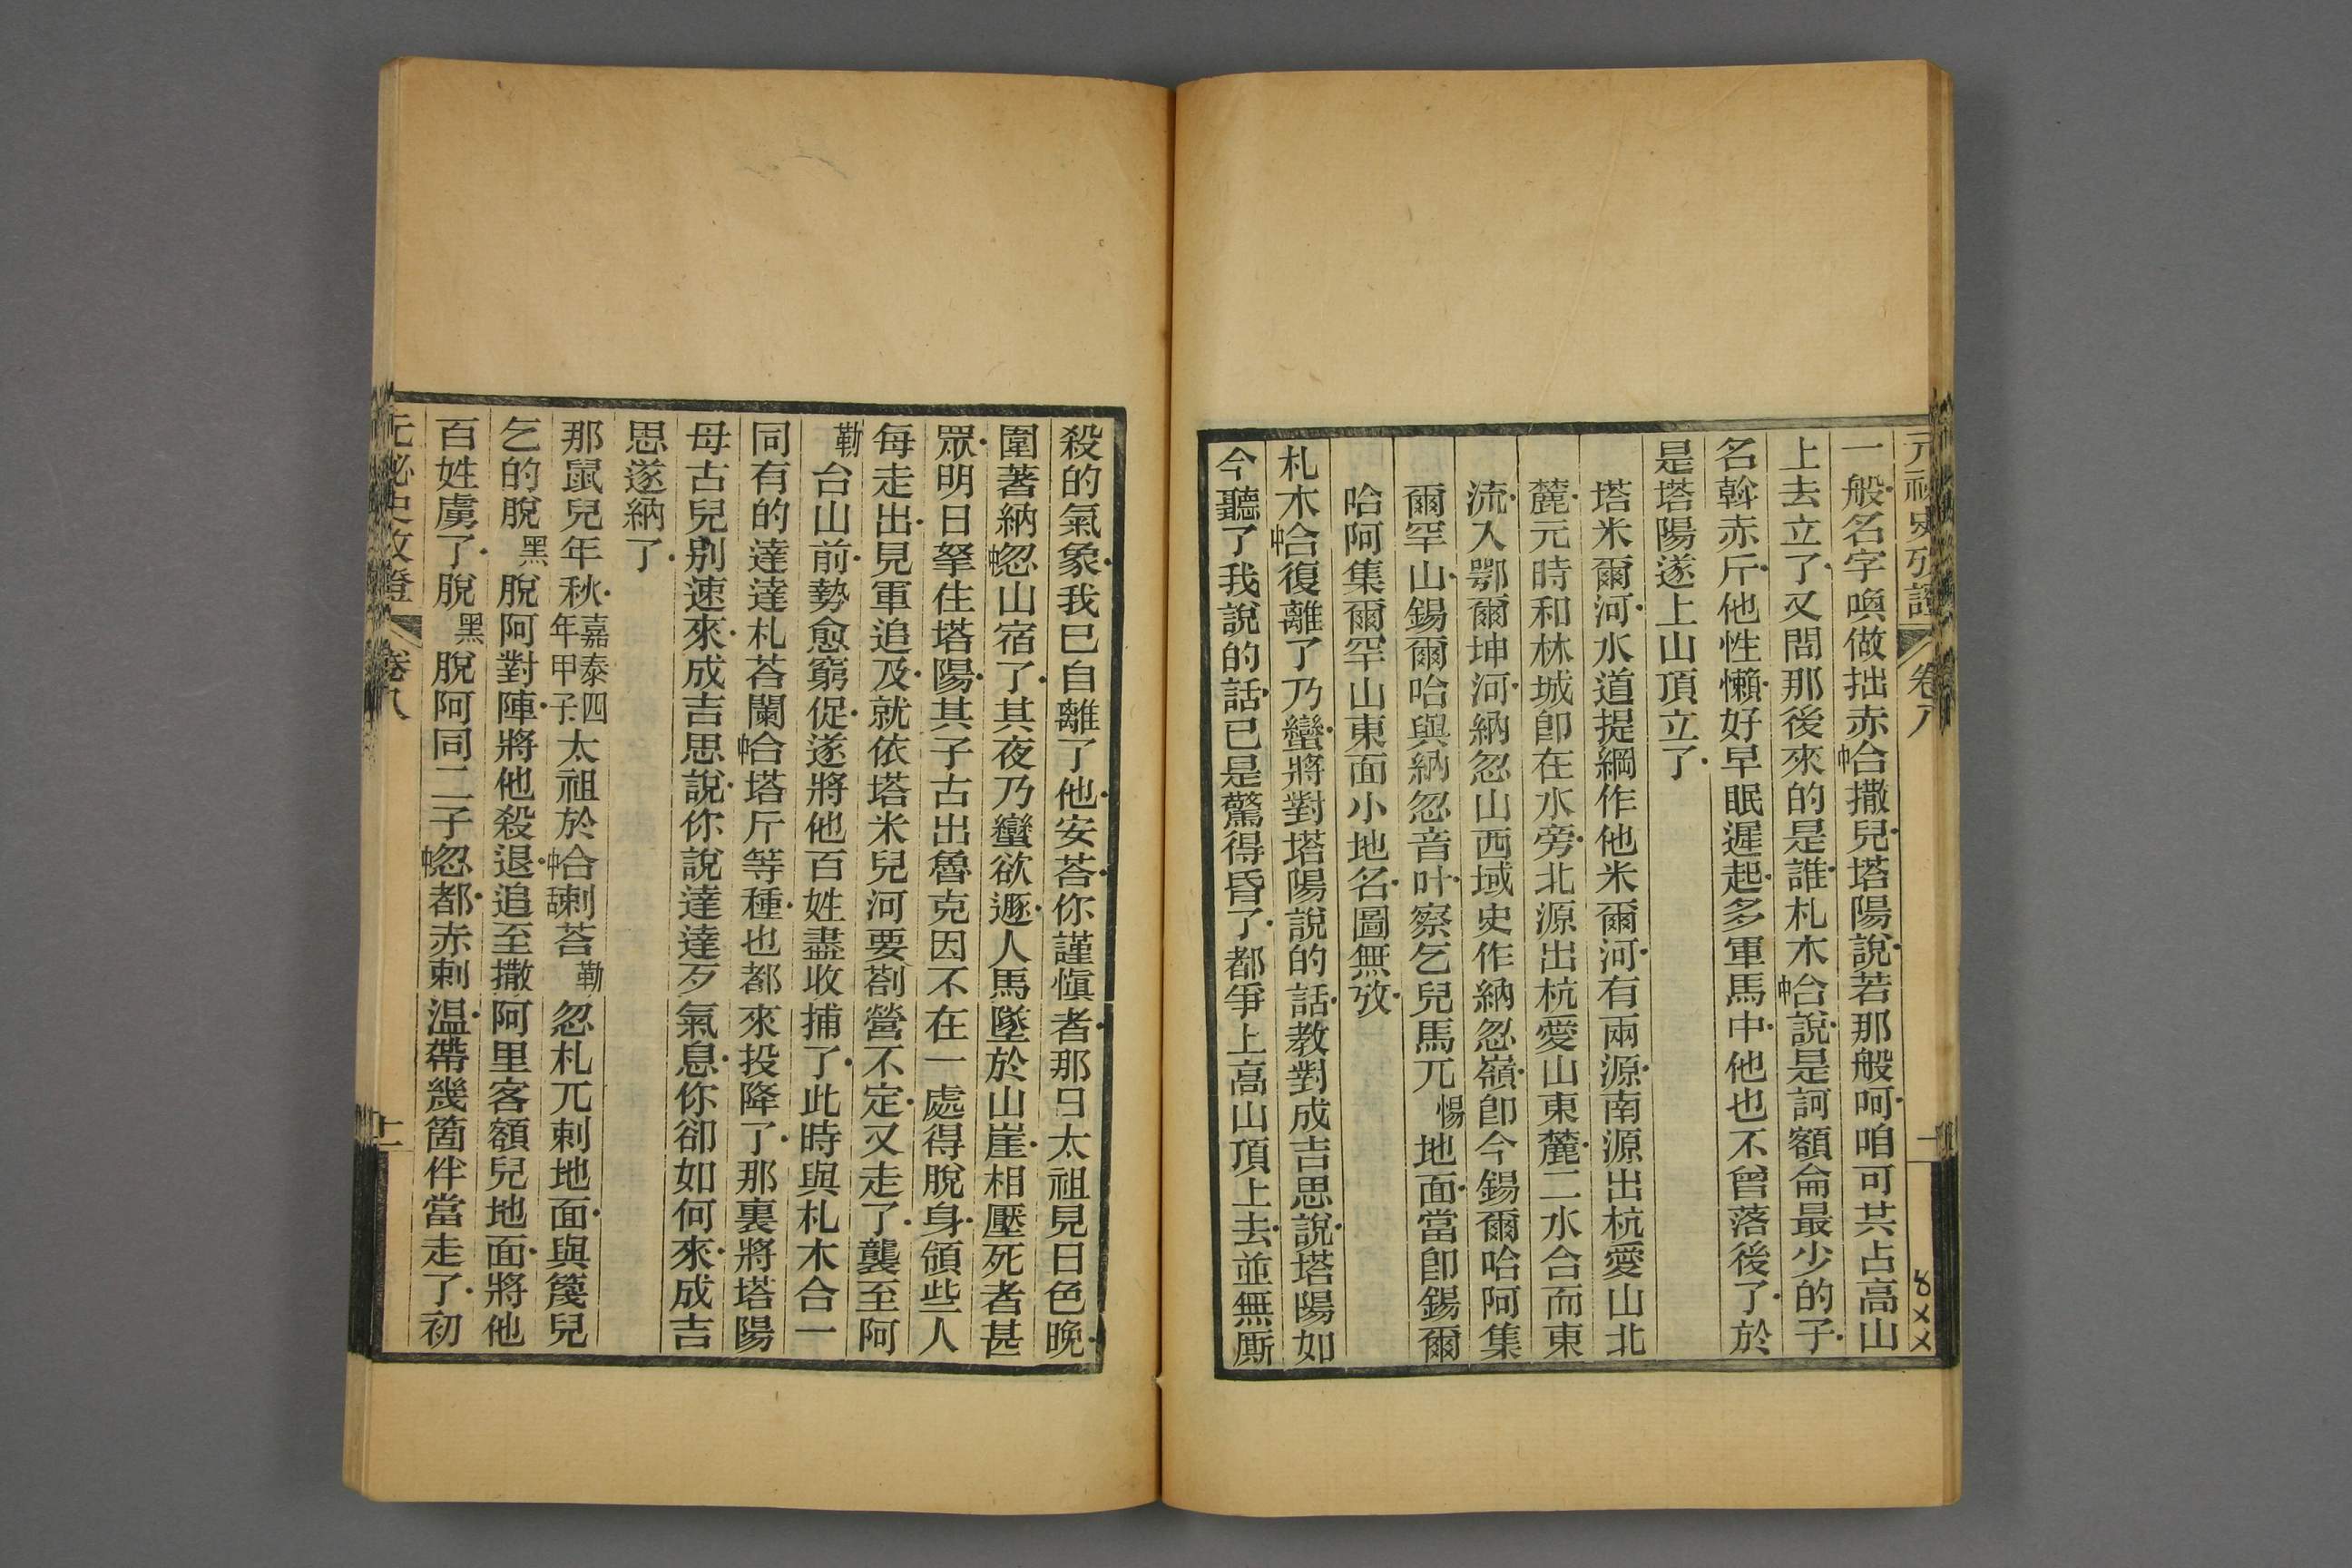 元祕史攷證 卷八
一般名字喚做拙赤中合撒兒塔陽說若那般呵咱可共占高山
上去立了又問那後來的是誰札木中合說是訶額侖最少的子
名斡赤斤他性懶好早眠遲起多軍馬中他也不曾落後了於
是塔陽遂上山頂立了
塔米爾河水道提綱作他米爾河有兩源南源出杭愛山北
麓元時和林城卽在水旁北源出杭愛山東麓二水合而東
流入鄂爾坤河納忽山西域史作納忽嶺卽今錫爾哈阿集
爾罕山錫爾哈與納忽音叶察乞兒馬兀惕地面當卽錫爾
哈阿集爾罕山東面小地名圖無攷
札木中合復離了乃蠻將對塔陽說的話教對成吉思說塔陽如
今聽了我說的話已是驚得昏了都爭上高山頂上去並無厮
殺的氣象我已自離了他安荅你謹愼者那日太祖見日色晚
圍著納中忽山宿了其夜乃蠻欲遯人馬墜於山崖相壓死者甚
眾明日拏住塔陽其子古出魯克因不在一處得脫身領些人
每走出見軍追及就依塔米兒河要劄營不定又走了襲至阿
勒台山前勢愈窮促遂將他百姓盡收捕了此時與札木合一
同有的達達札荅闌中合塔斤等種也都來投降了那裏將塔陽
母古兒別速來成吉思說你說達達歹氣息你卻如何來成吉
思遂納了
那鼠兒年秋嘉泰四年甲子太祖於中合舌剌荅勒忽札兀剌地面與篾兒
乞的脫黑脫阿對陣將他殺退追至撒阿里客額兒地面將他
百姓虜了脫黑脫阿同二子中忽都赤剌溫帶幾箇伴當走了初
元祕史攷證 卷八 十二